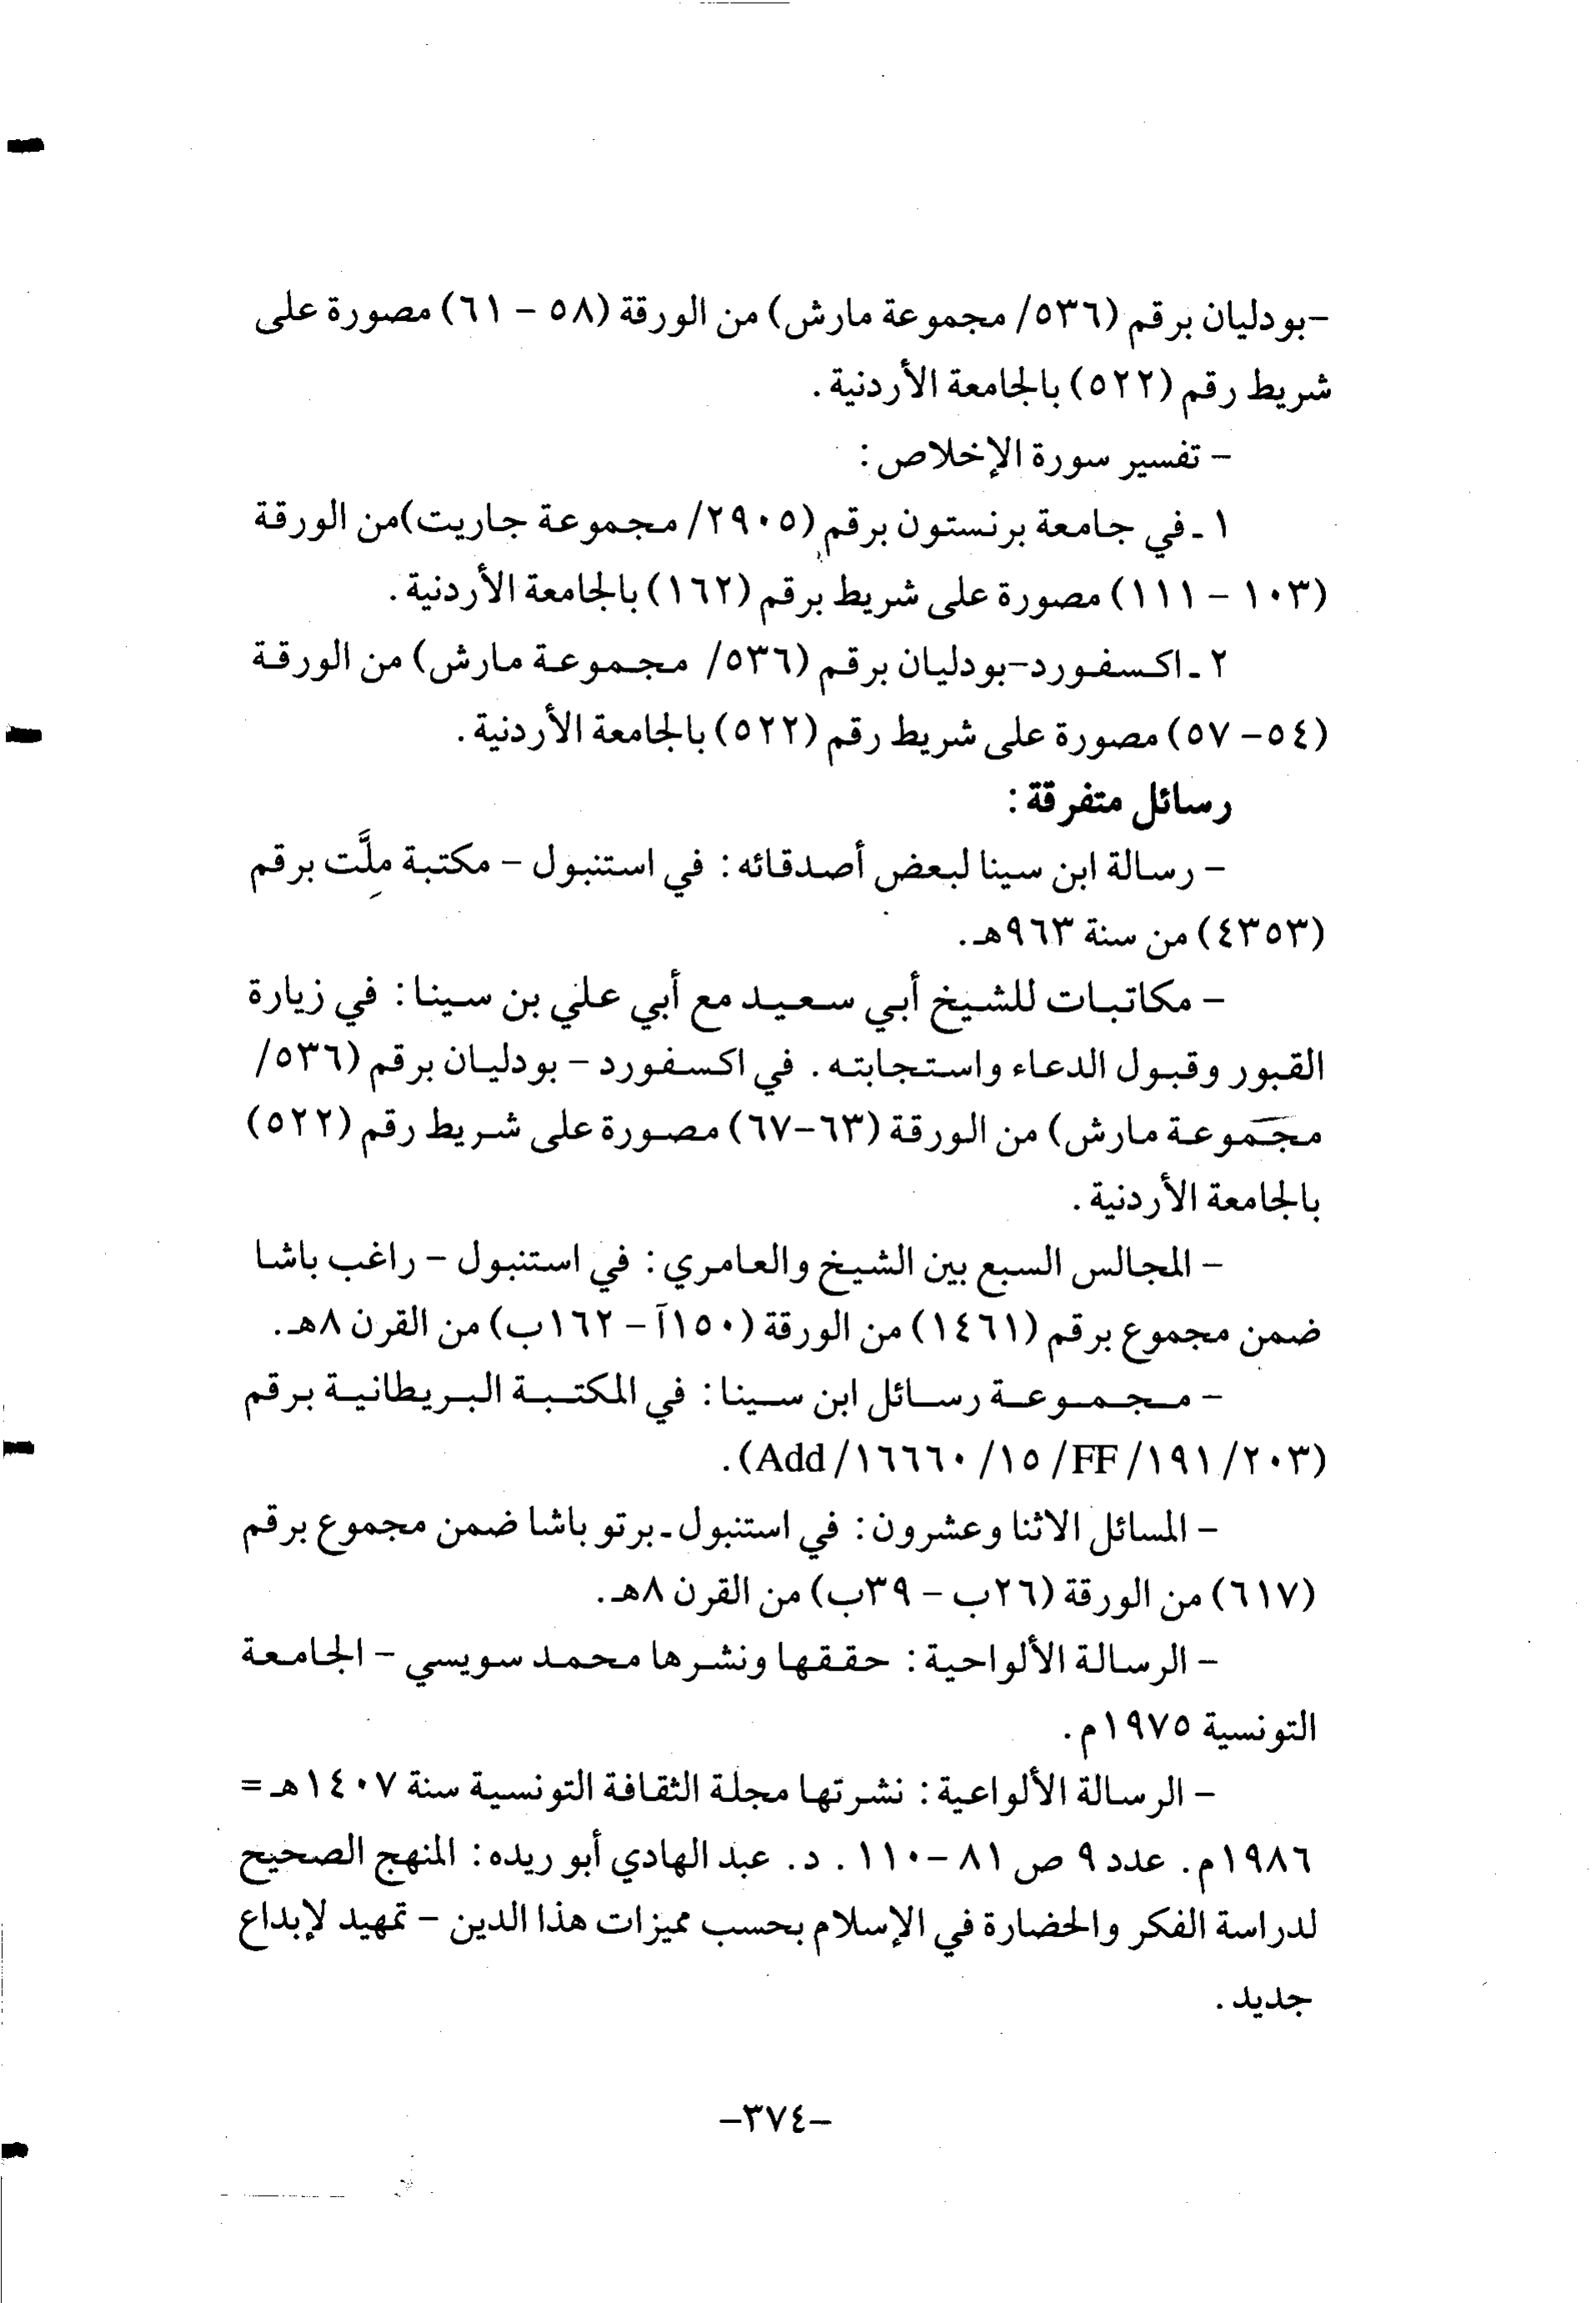 -بودليان برقم (٥٣٦/ مجموعة مارش) من الورقة (٥٨ - ٦١) مصورة على
شريط رقم (٥٢٢) بالجامعة الأردنية.
- تفسير سورة الإخلاص:
١ـ في جامعة برنستون برقم (٢٩٠٥/ مجموعة جاريت)من الورقة
(١٠٣ - ١١١) مصورة على شريط برقم (١٦٢) بالجامعة الأردنية.
٢ـ اكسفورد-بودليان برقم (٥٣٦/ مجموعة مارش) من الورقة
(٥٤- ٥٧) مصورة على شريط رقم (٥٢٢) بالجامعة الأردنية.
رسائل متفرقة:
- رسالة ابن سينا لبعض أصدقائه: في استنبول - مكتبة مِلَّت برقم
(٤٣٥٣) من سنة ٩٦٣هـ.
- مكاتبات للشيخ أبي سعيد مع أبي علي بن سينا: في زيارة
القبور وقبول الدعاء واستجابته. في اكسفورد - بودليان برقم (٥٣٦/
مجموعة مارش) من الورقة (٦٣-٦٧) مصورة على شريط رقم (٥٢٢)
بالجامعة الأردنية.
- المجالس السبع بين الشيخ والعامري: في استنبول - راغب باشا
ضمن مجموع برقم (١٤٦١) من الورقة (١٥٠آ - ١٦٢ب) من القرن ٨هـ.
- مجموعة رسائل ابن سينا: في المكتبة البريطانية برقم
(Add/١٦٦٦٠/١٥/FF/١٩١/٢٠٣).
- المسائل الاثنا وعشرون: في استنبول ـ برتو باشا ضمن مجموع برقم
(٦١٧) من الورقة (٢٦ب - ٣٩ب) من القرن ٨هـ.
- الرسالة الألواحية: حققها ونشرها محمد سويسي - الجامعة
التونسية ١٩٧٥م.
- الرسالة الألواعية: نشرتها مجلة الثقافة التونسية سنة ١٤٠٧هـ =
١٩٨٦م. عدد ٩ ص ٨١-١١٠. د. عبد الهادي أبو ريده: المنهج الصحيح
لدراسة الفكر والحضارة في الإسلام بحسب مميزات هذا الدين - تمهيد لإبداع
جديد.
-٣٧٤-